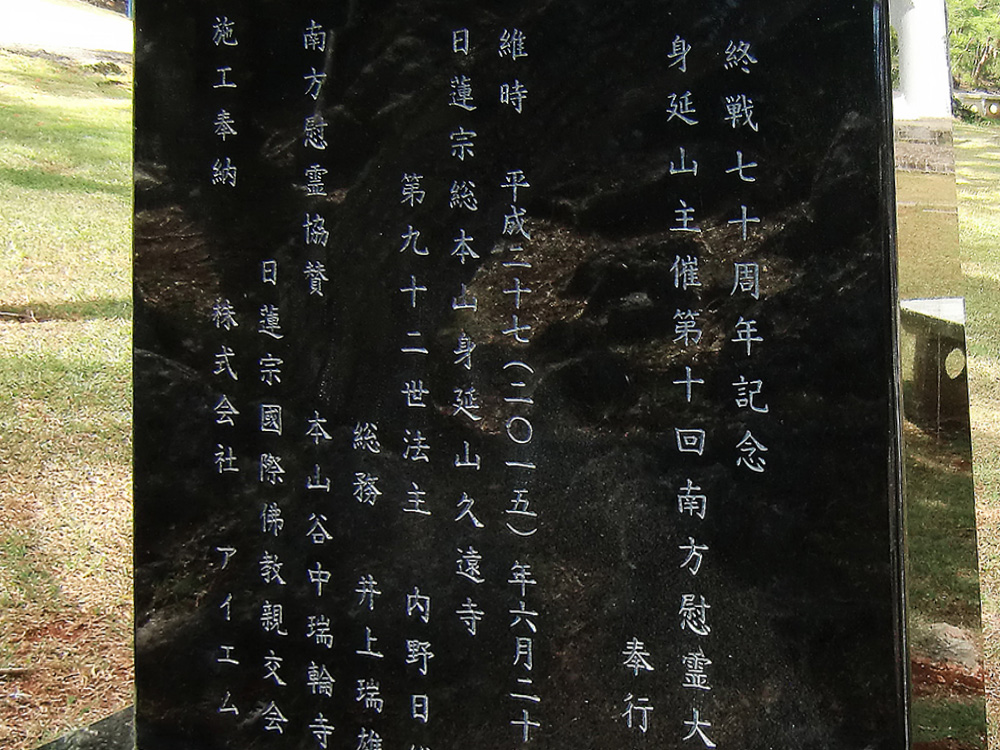 終戦七十周年記念
身延山主催第十回南方慰霊大
奉行
維時 平成二十七(二〇一五)年六月二十
日蓮宗総本山身延山久遠寺
第九十二世法主 内野日
総務 井上瑞雄
南方慰霊協賛 本山谷中瑞輪寺
日蓮宗國際佛教親交会
施工奉納 株式会社 アイエム